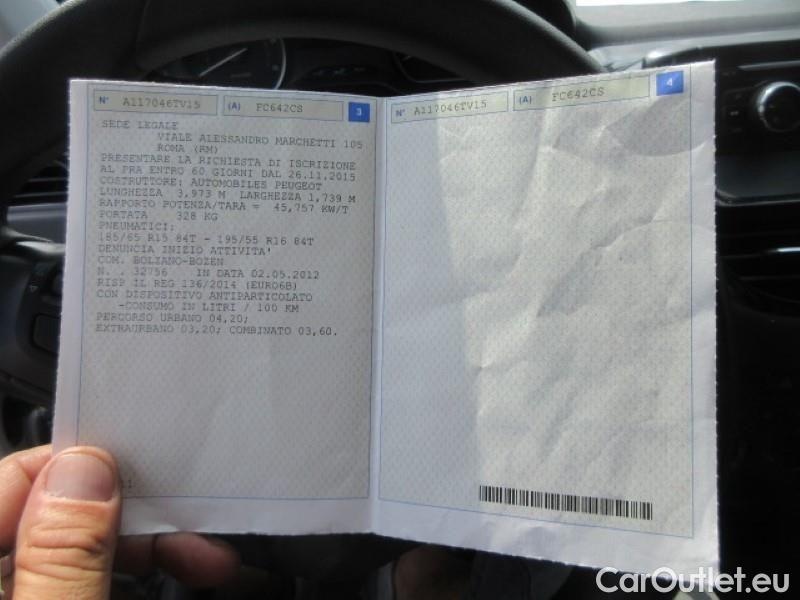 N° A117046TV15 (A) FC642CS 3
SEDE LEGALE
VIALE ALESSANDRO MARCHETTI 105
ROMA (RM)
PRESENTARE LA RICHIESTA DI ISCRIZIONE
AL PRA ENTRO 60 GIORNI DAL 26.11.2015
COSTRUTTORE: AUTOMOBILES PEUGEOT
LUNGHEZZA 3,973 M LARGHEZZA 1,739 M
RAPPORTO POTENZA/TARA = 45,757 KW/T
PORTATA 328 KG
PNEUMATICI:
185/65 R15 84T - 195/55 R16 84T
DENUNCIA INIZIO ATTIVITA'
COM. BOLZANO-BOZEN
N. . 32756 IN DATA 02.05.2012
RISP IL REG 136/2014 (EURO6B)
CON DISPOSITIVO ANTIPARTICOLATO
-CONSUMO IN LITRI / 100 KM
PERCORSO URBANO 04,20;
EXTRAURBANO 03,20; COMBINATO 03,60.
N° A117046TV15 (A) FC642CS 4
CarOutlet.eu